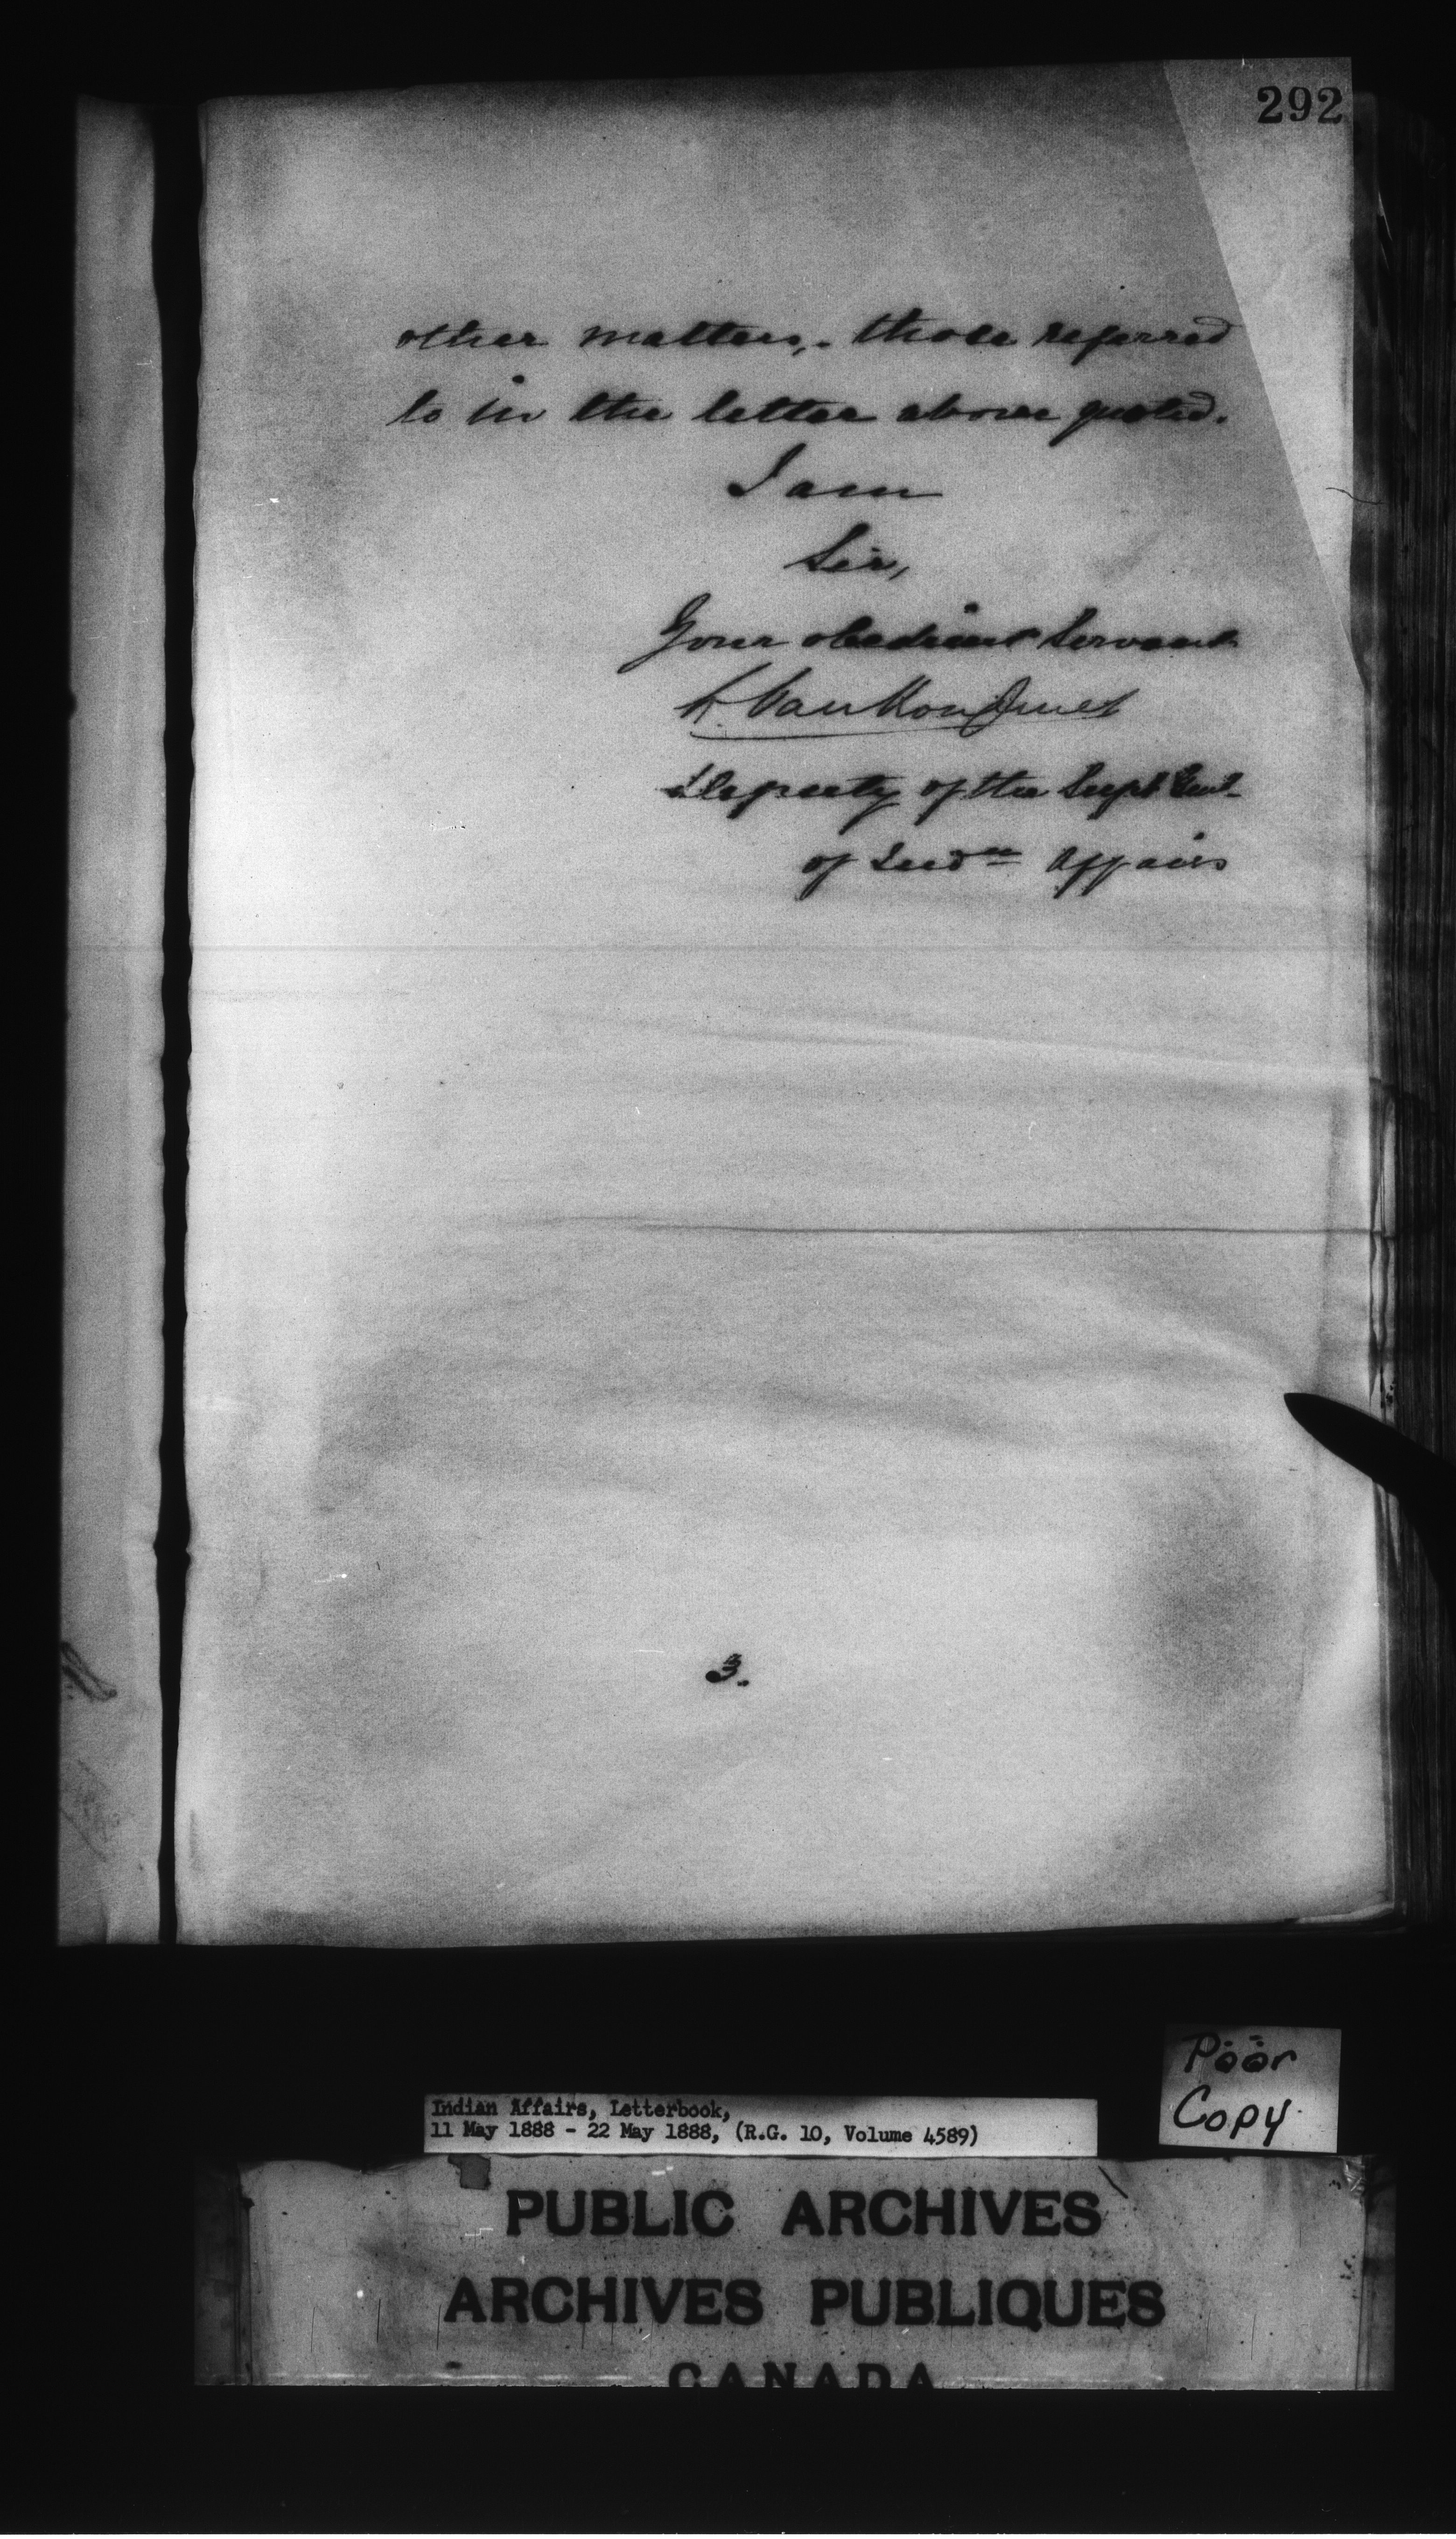 292
other matters, those referred
to in the letter above quoted.
I am
Sir,
Your obedient Servant
L. VanKoughnet
Deputy of the Supt Genl
of Indn Affairs
3.
Poor
Copy
Indian Affairs, Letterbook,
11 May 1888 - 22 May 1888, (R.G. 10, Volume 4589)
PUBLIC ARCHIVES
ARCHIVES PUBLIQUES
CANADA